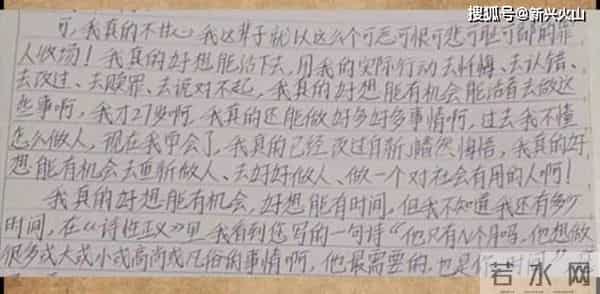 搜狐号@新兴火山
可,我真的不甘心我这辈子就以这么个可恶可恨可悲可耻可鄙的罪
人收场!我真的好想能活下去,用我的实际行动去忏悔、去认错、
去改过、去赎罪、去说对不起,我真的好想能有机会能活着去做这
些事啊,我才27岁啊,我真的还能做好多好多事情啊,过去我不懂
怎么做人,现在我学会了,我真的已经改过自新、幡然悔悟,我真的好
想能有机会去重新做人、去好好做人、做一个对社会有用的人啊!
我真的好想能有机会,好想能有时间,但我不知道我还有多少
时间,在《诗性正义》里我看到您写的一句诗“他只有N个月吗,他想做
很多或大或小或高尚或凡俗的事情啊,他最需要的,也是你 时间”
若水网